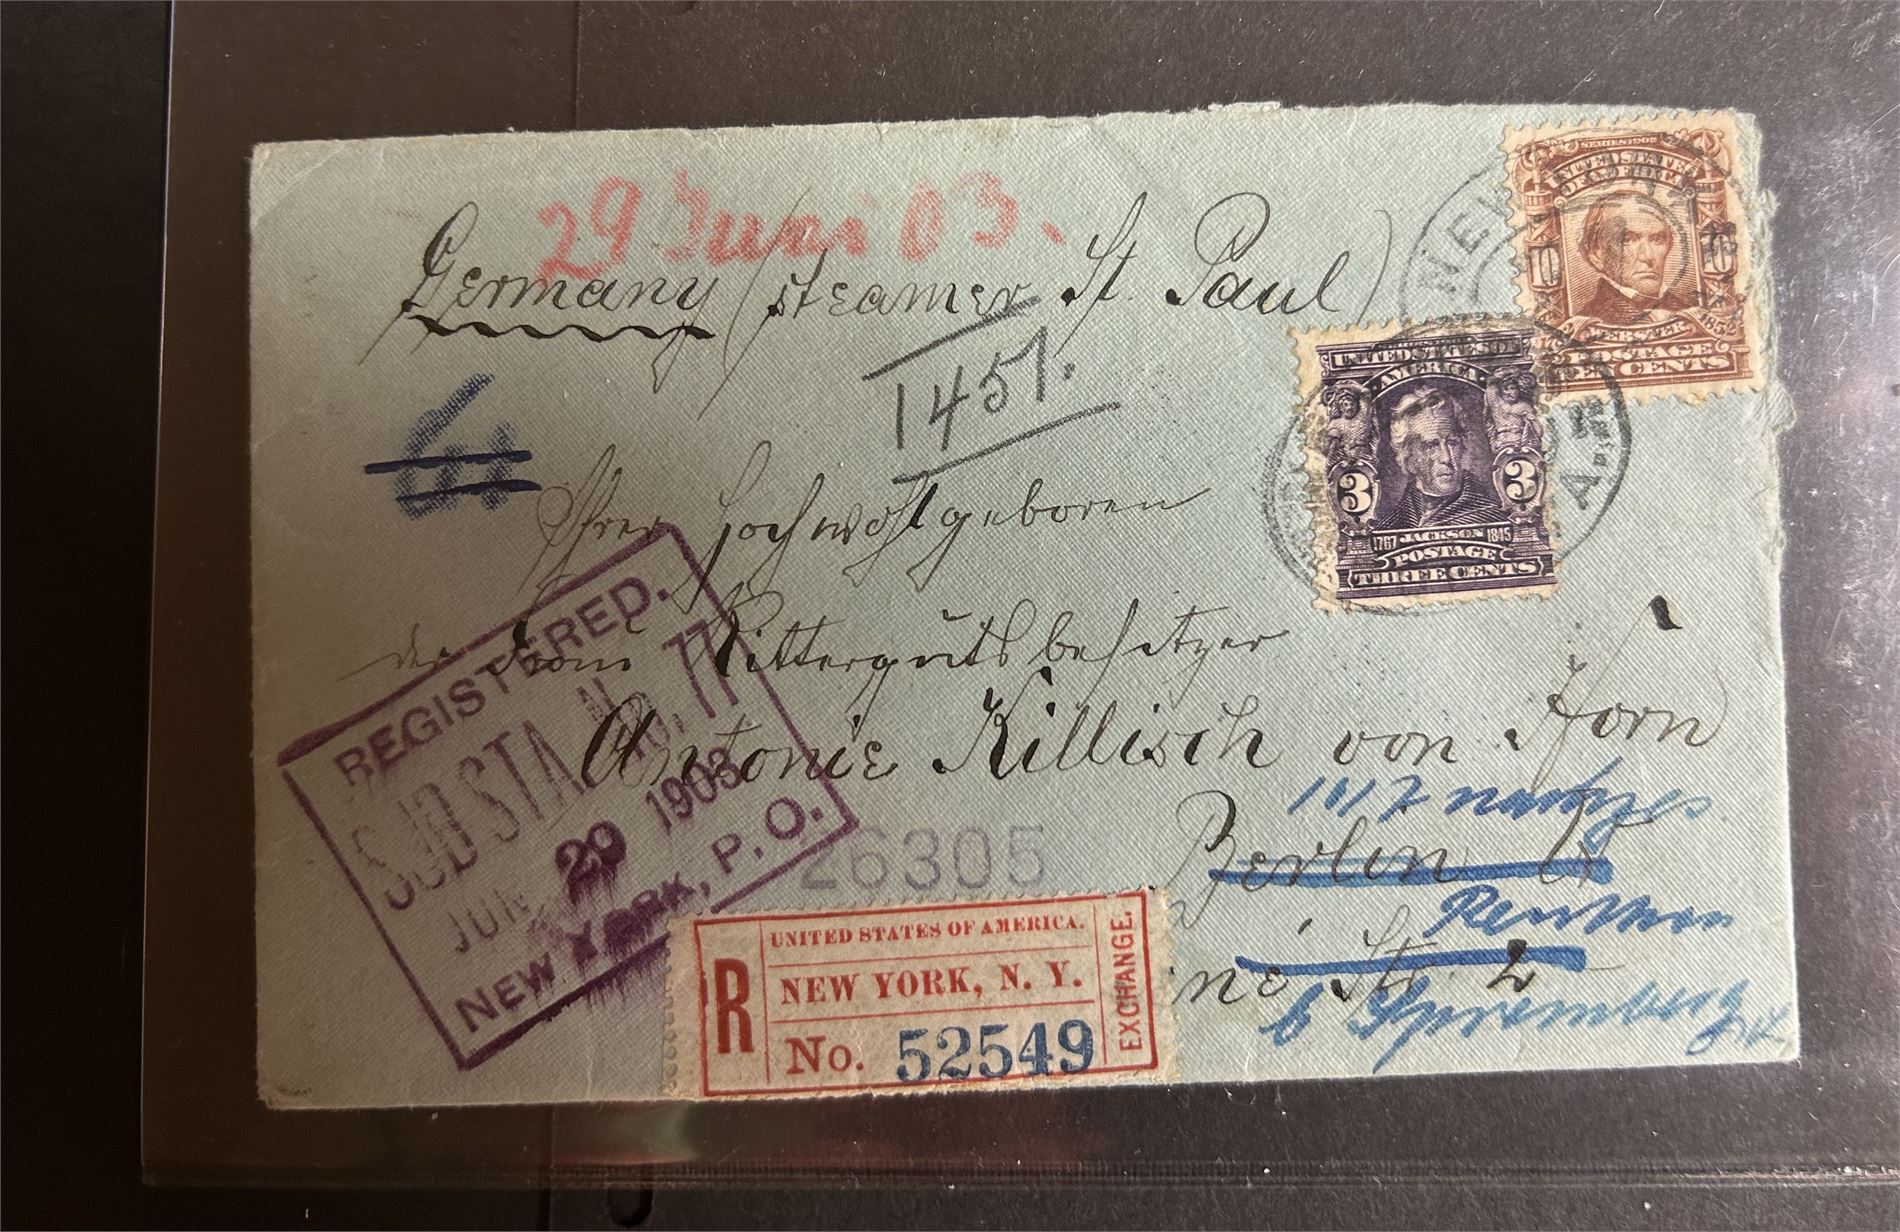 29 Juni 03.
Germany (steamer St. Paul)
1451.
SERIES 1902
UNITED STATES
OF AMERICA
10 10
WEBSTER
1782 1852
POSTAGE
TEN CENTS
NEW
UNITED STATES OF
AMERICA
3 3
1767 JACKSON 1845
POSTAGE
THREE CENTS
Ihrer Hochwohlgeboren
der Frau Rittergutsbesitzer
Antonie Killisch von Horn
Berlin W
ne Str. 2
REGISTERED.
SUB STA. No. 77
JUN 29 1903
NEW YORK, P. O.
26305
R
UNITED STATES OF AMERICA.
NEW YORK, N. Y.
No. 52549
EXCHANGE.
b Spremberg